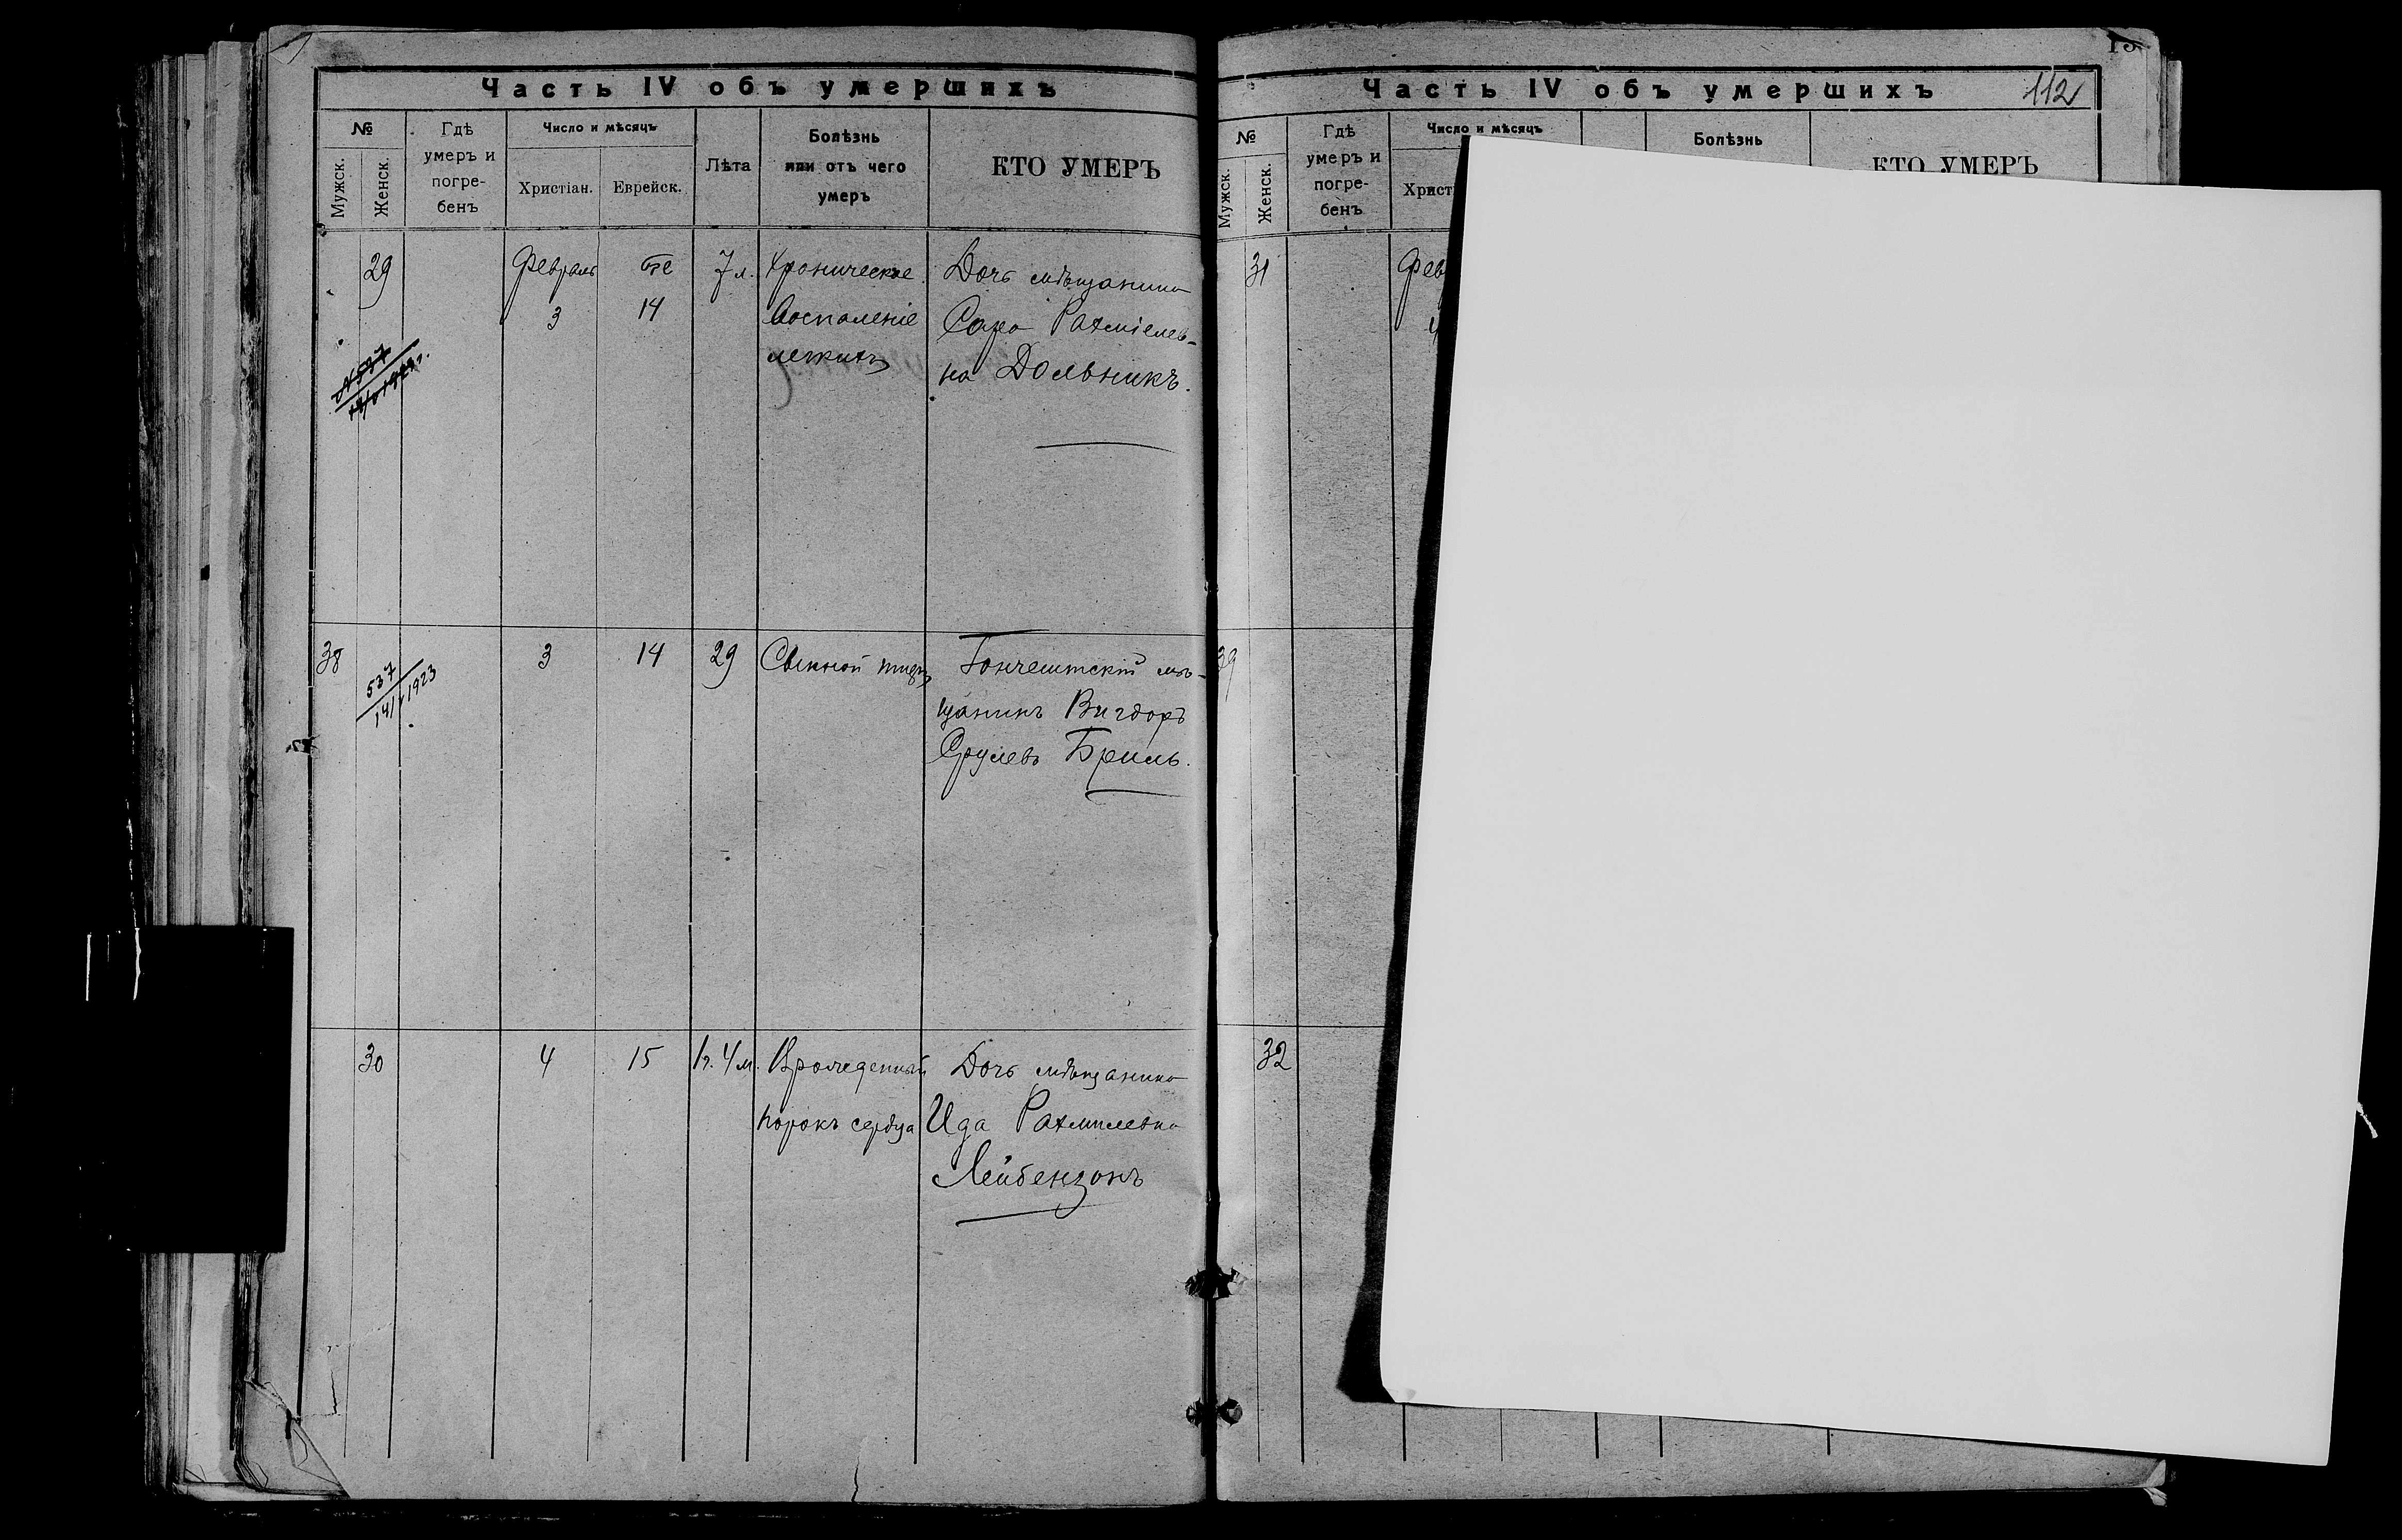 Часть IV объ умершихъ
№
Мужск.
Женск.
Гдѣ
умеръ и
погре-
бенъ
Число и мѣсяцъ
Христіан.
Еврейск.
Лѣта
Болѣзнь
или отъ чего
умеръ
КТО УМЕРЪ
29
Февраль
3
14
7 л.
Хроническое
Воспаленіе
легкихъ
Дочь мѣщанина
Сура Рахміелев-
на Дольникъ.
38
537
14/V 1923
3
14
29
Сыпной тифъ
Ганчештскій мѣ-
щанинъ Вигдоръ
Срулевъ Бриль.
30
4
15
1 г. 4 м.
Врожденный
порокъ сердца
Дочь мѣщанина
Ида Рахмилевна
Лейбензонъ
Часть IV объ умершихъ
112
№
Мужск.
Женск.
Гдѣ
умеръ и
погре-
бенъ
Число и мѣсяцъ
Христ
Болѣзнь
КТО УМЕРЪ
31
Фев
4
39
32